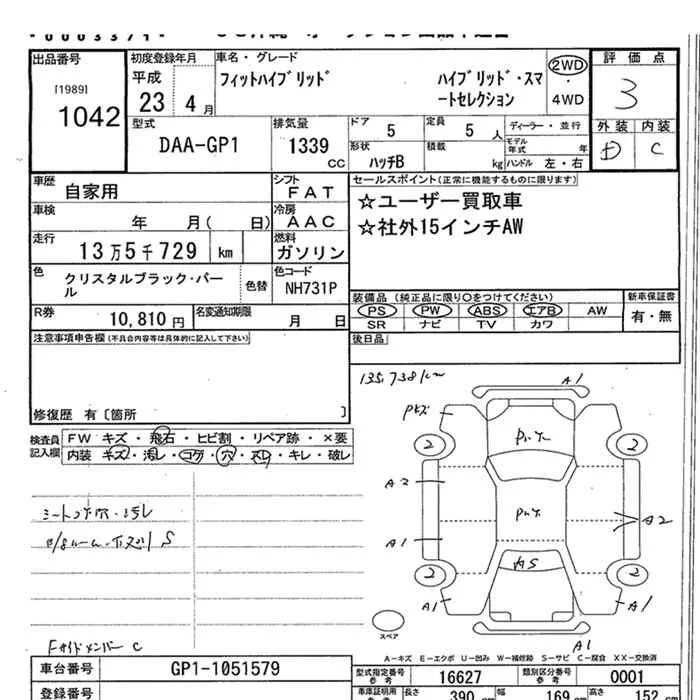 出品番号
[1989]
1042
初度登録年月
平成
23 4月
車名・グレード
フィットハイブリッド
ハイブリッド・スマ
ートセレクション
2WD
・
4WD
評価点
3
外装 内装
D C
型式
DAA-GP1
排気量
1339
CC
ドア
5
定員
5 人
ディーラー・並行
モデル年式 年
形状
ハッチB
積載
kg
ハンドル 左・右
車歴
自家用
シフト
FAT
車検
年 月( 日)
冷房
AAC
走行
13万5千729 km
燃料
ガソリン
色
クリスタルブラック・パー
ル
色替
色コード
NH731P
R券
10,810 円
名変通知期限
月 日
セールスポイント(正常に機能するものに限ります)
☆ユーザー買取車
☆社外15インチAW
装備品 (純正品に限り○をつけてください)
PS PW ABS エアB AW
SR ナビ TV カワ
新車保証書
有・無
後日品
注意事項申告欄(不具合内容等は具体的に記入して下さい)
修復歴 有〔箇所 〕
検査員
記入欄
FW キズ・飛石・ヒビ割・リペア跡・×要
内装 キズ・汚レ・コゲ・穴・スレ・キレ・破レ
135,738km
A1
2 2
A2
A2
A1
2 2
A1
A1
A1
スペア
A-キズ E-エクボ U-凹み W-補修跡 S-サビ C-腐食 XX-交換済
車台番号
GP1-1051579
登録番号
型式指定番号
参考
16627
類別区分番号
参考
0001
車庫証明用
参考
長さ
390 cm
幅
169 cm
高さ
152 cm